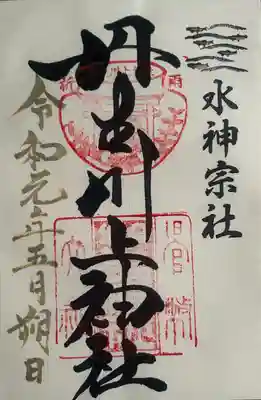 水神宗社
丹生川上神社
令和元年五月朔日